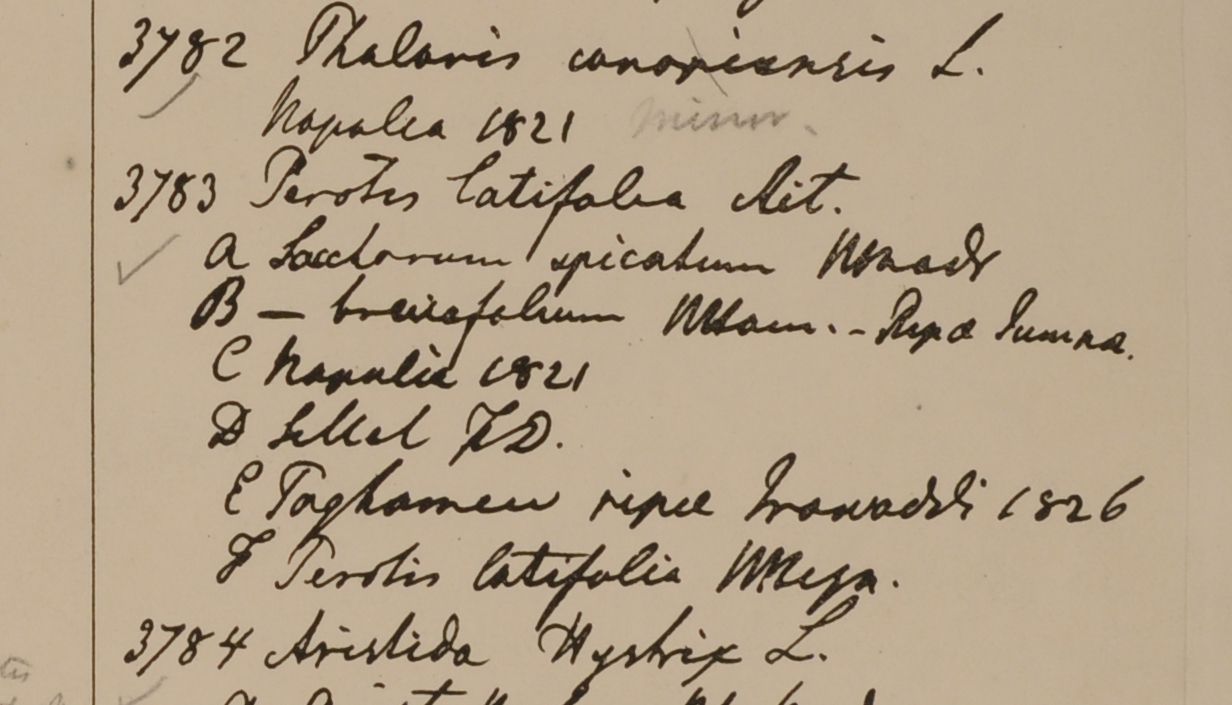 3782 Phalaris canariensis L.
Napalia 1821 minor.
3783 Perotis latifolia Ait.
A Saccharum spicatum HMadr
B — brevifolium HHam. - Ripa Jumna.
C Napalia 1821
D Sillet FD.
E Taghamew ripa Irawaddi 1826
F Perotis latifolia HHeyn.
3784 Aristida Hystrix L.